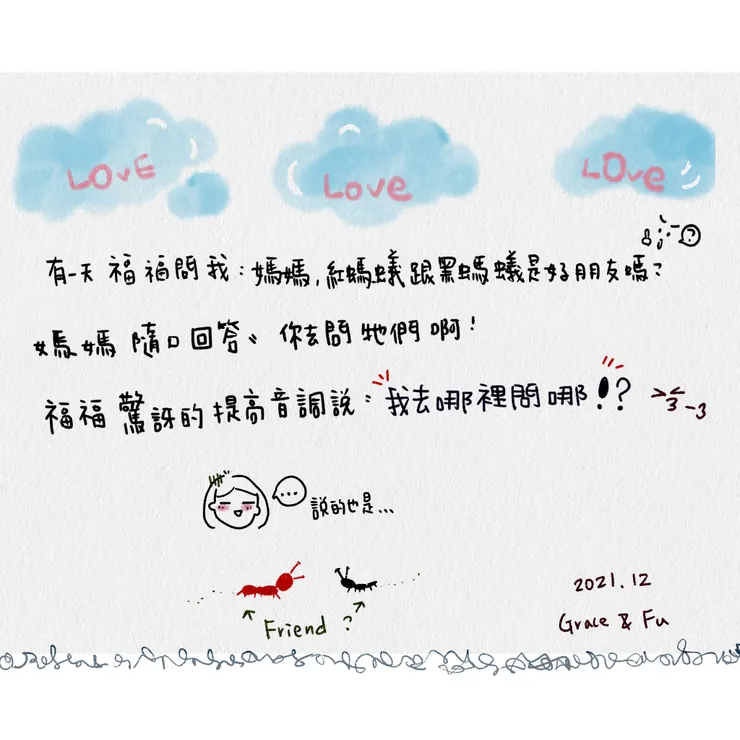 LOVE
Love
LOve
有一天 福福問我：媽媽，紅螞蟻跟黑螞蟻是好朋友嗎？
媽媽 隨口回答：你去問牠們啊！
福福驚訝的提高音調說：我去哪裡問哪!?
說的也是...
Friend ?
2021.12
Grace & Fu